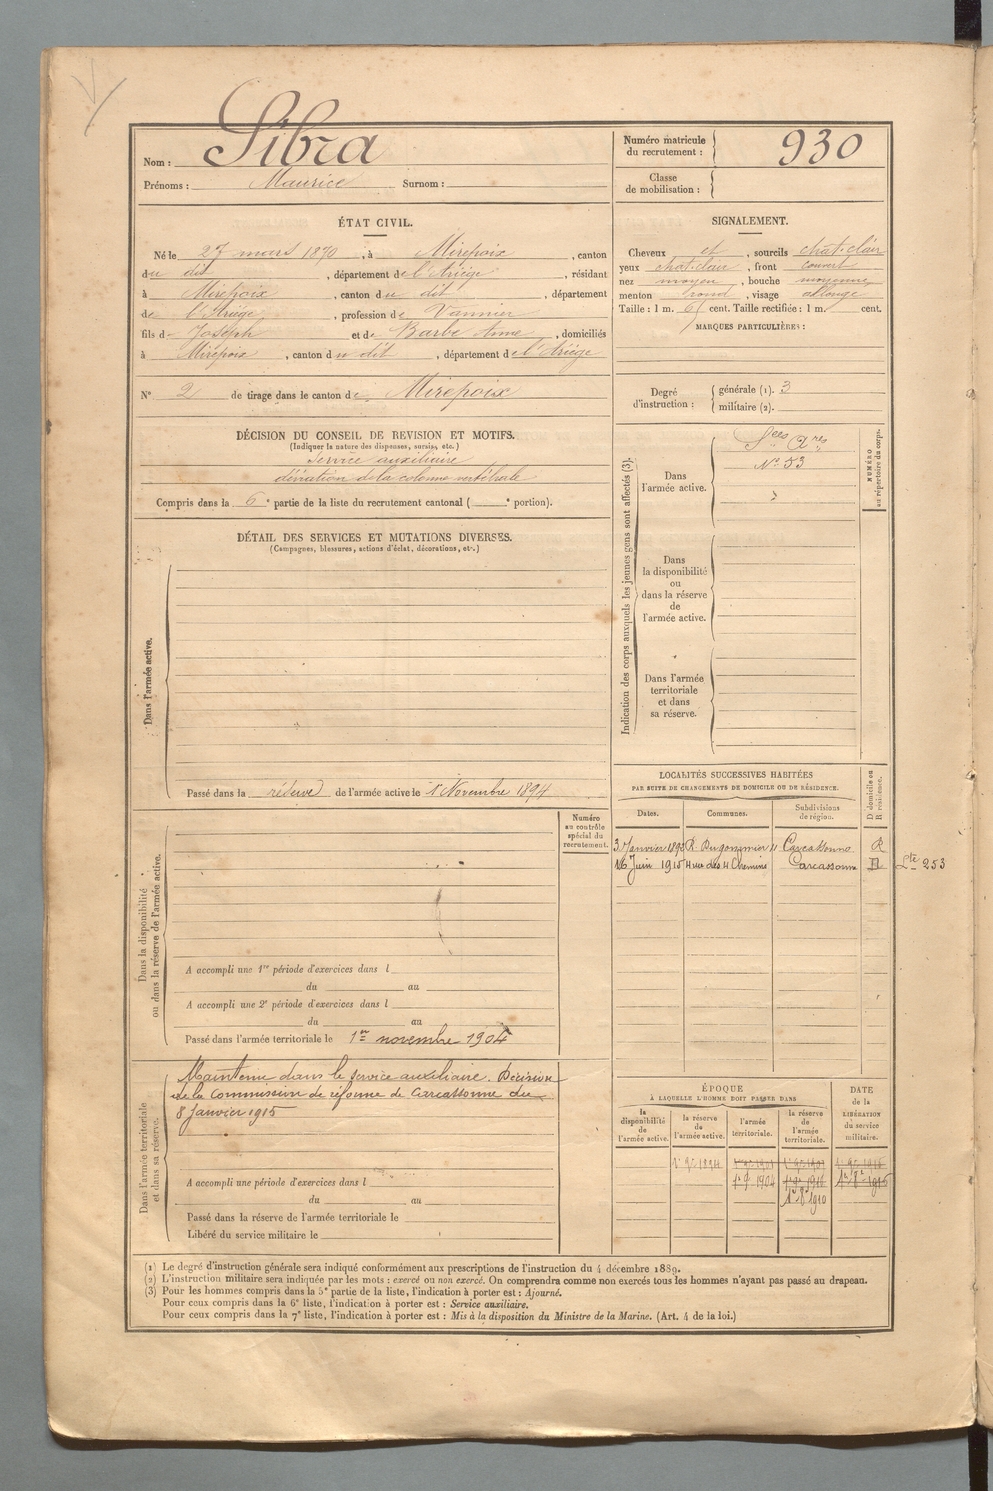 Nom : Sibra
Prénoms : Maurice Surnom :
Numéro matricule du recrutement : 930
Classe de mobilisation :
ÉTAT CIVIL.
Né le 27 mars 1870, à Mirepoix, canton
du dit, département de l'Ariège, résidant
à Mirepoix, canton du dit, département
de l'Ariège, profession de Vannier
fils de Joseph et de Barbe Anne, domiciliés
à Mirepoix, canton du dit, département de l'Ariège
N° 2 de tirage dans le canton de Mirepoix
SIGNALEMENT.
Cheveux et, sourcils chat. clair
yeux chat. clair, front couvert
nez moyen, bouche moyenne
menton rond, visage allongé
Taille : 1 m. cent. Taille rectifiée : 1 m. cent.
MARQUES PARTICULIÈRES :
Degré d'instruction : générale (1). 3
militaire (2).
DÉCISION DU CONSEIL DE REVISION ET MOTIFS.
(Indiquer la nature des dispenses, sursis, etc.)
Service auxiliaire
déviation de la colonne vertébrale
Compris dans la 6e partie de la liste du recrutement cantonal ( e portion).
DÉTAIL DES SERVICES ET MUTATIONS DIVERSES.
(Campagnes, blessures, actions d'éclat, décorations, etc.)
Dans l'armée active.
Passé dans la réserve de l'armée active le 1 Novembre 1894
Indication des corps auxquels les jeunes gens sont affectés (3).
Dans l'armée active.
Sces Ares
N° 53
NUMÉRO au répertoire du corps.
Dans la disponibilité ou dans la réserve de l'armée active.
Dans l'armée territoriale et dans sa réserve.
LOCALITÉS SUCCESSIVES HABITÉES
PAR SUITE DE CHANGEMENTS DE DOMICILE OU DE RÉSIDENCE.
D domicile ou R résidence.
Dates. Communes. Subdivisions de région.
3 Janvier R. Dugommier 11 Carcassonne R
16 Juin 1915 4 rue des 4 Chemins Carcassonne D Ste 253
Dans la disponibilité ou dans la réserve de l'armée active.
Numéro au contrôle spécial du recrutement.
A accompli une 1re période d'exercices dans l
du au
A accompli une 2e période d'exercices dans l
du au
Passé dans l'armée territoriale le 1er novembre 1904
Dans l'armée territoriale et dans sa réserve.
Maintenu dans le service auxiliaire. Décision
de la Commission de réforme de Carcassonne du
8 Janvier 1915
A accompli une période d'exercices dans l
du au
Passé dans la réserve de l'armée territoriale le
Libéré du service militaire le
ÉPOQUE
À LAQUELLE L'HOMME DOIT PASSER DANS
la disponibilité de l'armée active.
la réserve de l'armée active.
l'armée territoriale.
la réserve de l'armée territoriale.
DATE de la LIBÉRATION du service militaire.
1r 9e 1894
1r 9e 1904
1r 8e 1910
(1) Le degré d'instruction générale sera indiqué conformément aux prescriptions de l'instruction du 4 décembre 1889.
(2) L'instruction militaire sera indiquée par les mots : exercé ou non exercé. On comprendra comme non exercés tous les hommes n'ayant pas passé au drapeau.
(3) Pour les hommes compris dans la 5e partie de la liste, l'indication à porter est : Ajourné.
Pour ceux compris dans la 6e liste, l'indication à porter est : Service auxiliaire.
Pour ceux compris dans la 7e liste, l'indication à porter est : Mis à la disposition du Ministre de la Marine. (Art. 4 de la loi.)